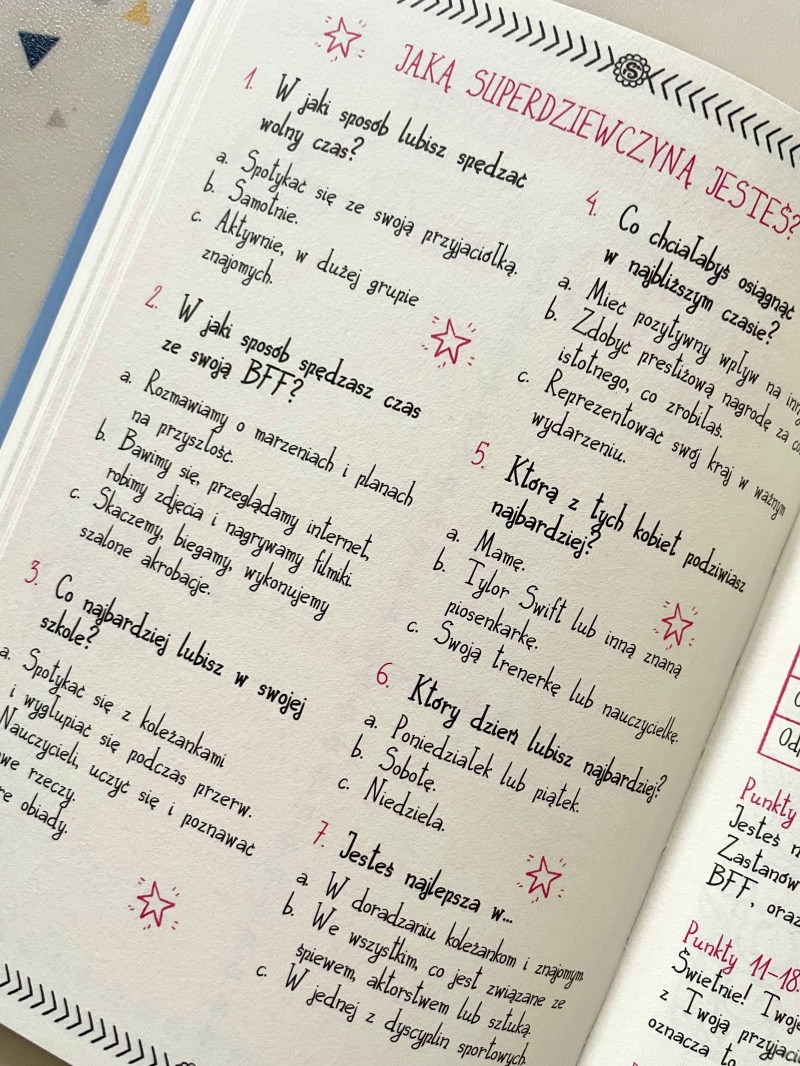 JAKĄ SUPERDZIEWCZYNĄ JESTEŚ?
1. W jaki sposób lubisz spędzać
wolny czas?
a. Spotykać się ze swoją przyjaciółką.
b. Samotnie.
c. Aktywnie, w dużej grupie
znajomych.
2. W jaki sposób spędzasz czas
ze swoją BFF?
a. Rozmawiamy o marzeniach i planach
na przyszłość.
b. Bawimy się, przeglądamy internet,
robimy zdjęcia i nagrywamy filmiki.
c. Skaczemy, biegamy, wykonujemy
szalone akrobacje.
3. Co najbardziej lubisz w swojej
szkole?
a. Spotykać się z koleżankami
i wygłupiać się podczas przerw.
Nauczycieli, uczyć się i poznawać
rzeczy.
obiady.
4. Co chciałabyś osiągnąć
w najbliższym czasie?
a. Mieć pozytywny wpływ na
b. Zdobyć prestiżową nagrodę za
istotnego, co zrobiłaś.
c. Reprezentować swój kraj w ważnym
wydarzeniu.
5. Którą z tych kobiet podziwiasz
najbardziej?
a. Mamę.
b. Tylor Swift lub inną znaną
piosenkarkę.
c. Swoją trenerkę lub nauczycielkę.
6. Który dzień lubisz najbardziej?
a. Poniedziałek lub piątek.
b. Sobotę.
c. Niedziela.
7. Jesteś najlepsza w...
a. W doradzaniu koleżankom i znajomym.
b. We wszystkim, co jest związane ze
śpiewem, aktorstwem lub sztuką.
c. W jednej z dyscyplin sportowych.
Punkty
Jesteś
Zastanów
BFF, oraz
Punkty 11-18
Świetnie! Twoje
z Twoją
oznacza to